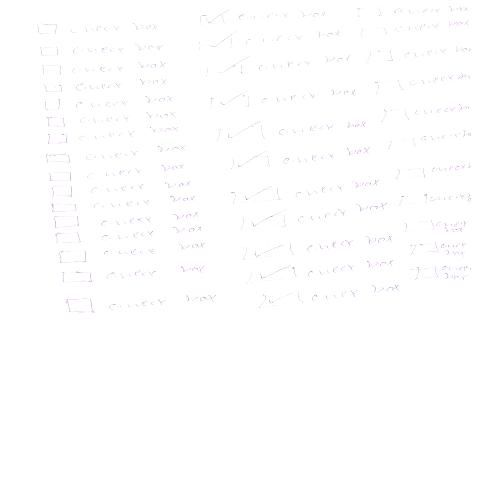 ☐ check box
☐ check box
☐ check box
☐ check box
☐ check box
☐ check box
☐ check box
☐ check box
☐ check box
☐ check box
☐ check box
☐ check box
☐ check box
☐ check box
☐ check box
☐ check box
[✓] check box
[✓] check box
[✓] check box
[✓] check box
[✓] check box
[✓] check box
[✓] check box
[✓] check box
[✓] check box
[✓] check box
[✓] check box
[ ] check box
[ ] check box
[ ] check box
[ ] check
[ ] check
[ ] check
[ ] check
[ ] check
[ ] check
box
[ ] check
box
[ ] check
box